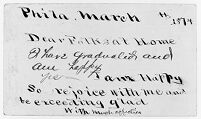 Phila. March 11th 1874
Dear Folks at Home
I have graduated and
am happy
yes I am Happy
So rejoice with me and
be exceeding glad
With much affection